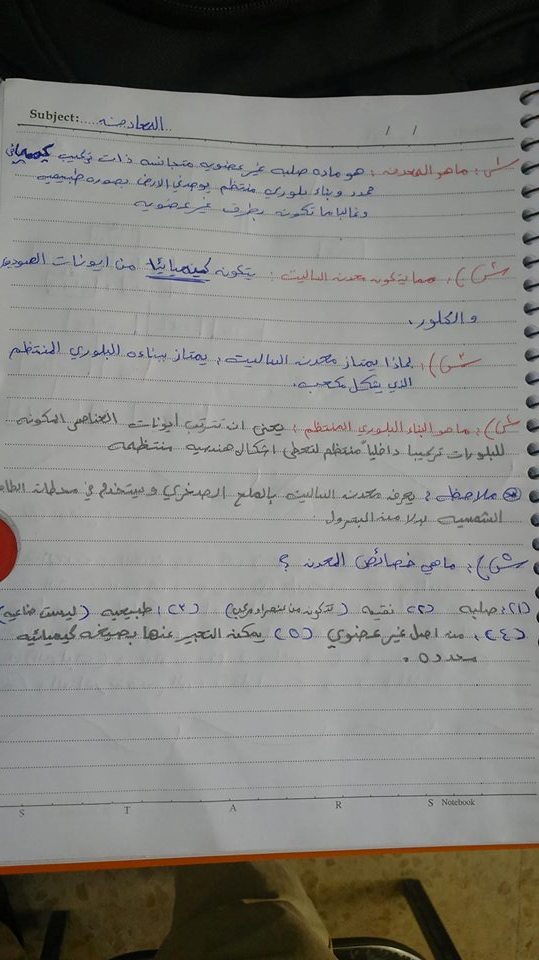 Subject: المعادن
/ /
س): ما هو المعدن: هو ماده صلبه غير عضويه متجانسه ذات تركيب كيميائي
محدد وبناء بلوري منتظم يوجد في الارض بصوره طبيعيه
وغالبا ما تكونه بظروف غير عضويه
س): مما يتكون معدن الهاليت: يتكون كيميائيًا من ايونات الصوديوم
والكلور.
س): لماذا يمتاز معدن الهاليت: يمتاز ببناءه البلوري المنتظم
الذي يشكل مكعب.
س): ما هو البناء البلوري المنتظم: يعني ان تترتب أيونات العناصر المكونه
للبلورات تركيبا داخلياً منتظم لتعطي اشكال هندسيه منتظمه
ملاحظه: يعرف معدن الهاليت بالملح الصخري ويستخدم في محطات الطاقه
الشمسيه بدلا من البترول.
س): ما هي خصائص المعدن؟
(١): صلبه (٢) نقيه (تتكون من عنصر او مركب) (٣): طبيعيه (ليست صناعيه)
(٤): من اصل غير عضوي (٥) يمكن التعبير عنها بصيغه كيميائيه
محدده.
S T A R S Notebook